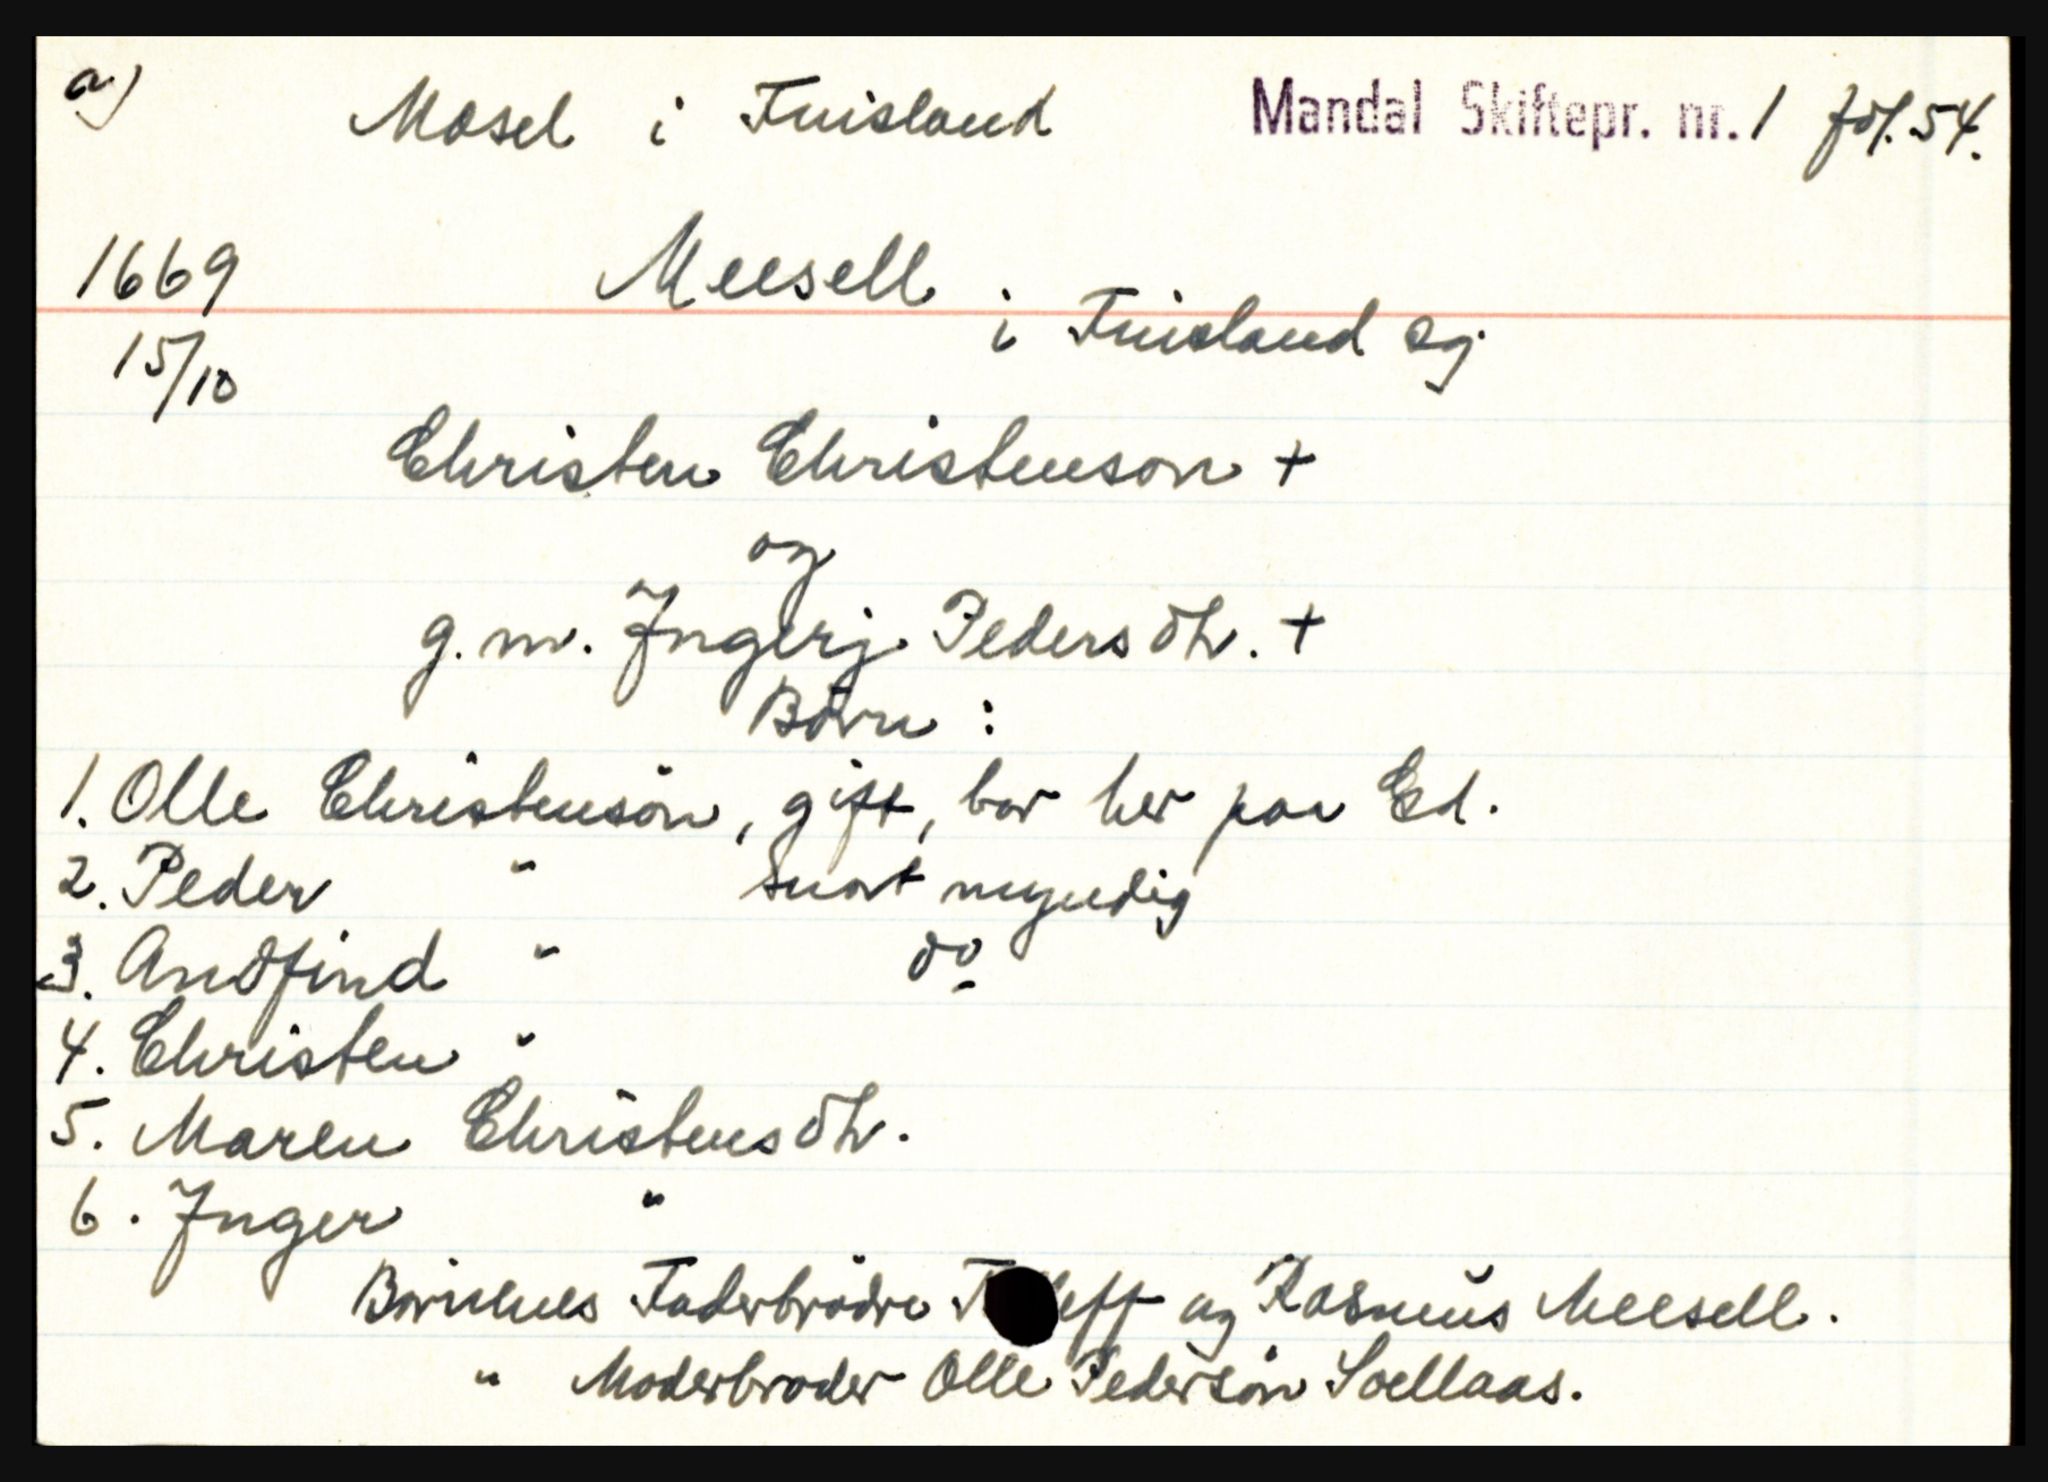 a)
Mosel i Finsland Mandal Skiftepr. nr. 1 fol. 54.
1669 Meesell
15/10 i Finsland sg
Christen Christenson +
og
g. m. Ingerj Peders dtr. +
Børn :
1. Olle Christensøn, gift, bor her paa Gd.
2. Peder " Snart myndig
3. Andfind " do
4. Christen "
5. Maren Christens dtr.
6. Inger "
Børnenes Faderbrødre og Rasmus Meesell.
" Moderbroder Olle Pedersøn